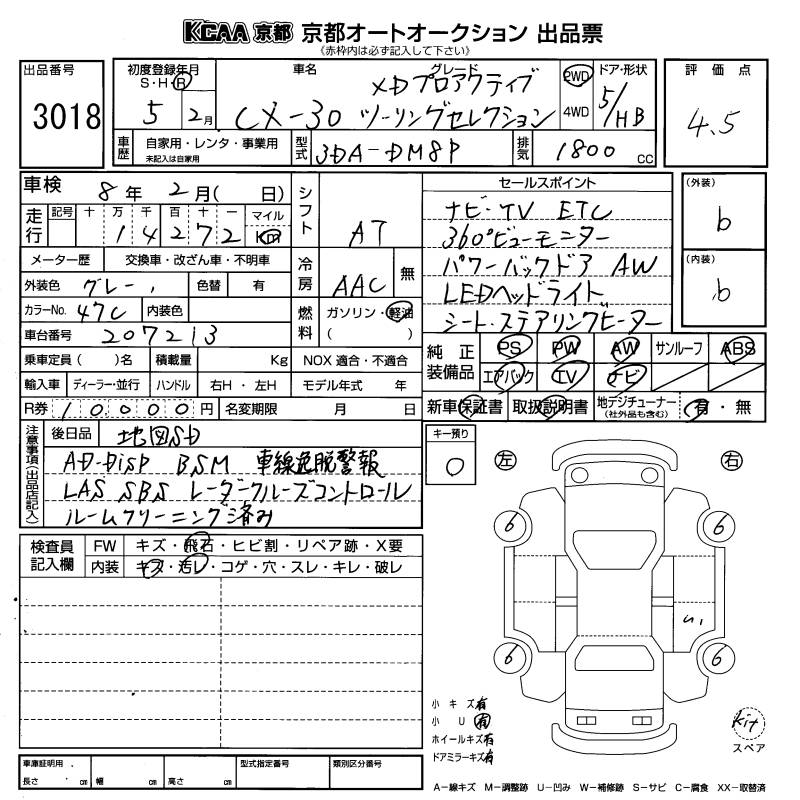 KCAA 京都 京都オートオークション 出品票
(赤枠内は必ず記入して下さい)
出品番号
3018
初度登録年月
S・H・R
5 2月
車名
グレード
CX-30
XDプロアクティブ
ツーリングセレクション
2WD
4WD
ドア・形状
5/HB
評価点
4.5
車歴
自家用・レンタ・事業用
未記入は自家用
型式
3DA-DM8P
排気
1800 cc
車検 8年 2月( 日)
走行
記号 十 万 千 百 十 一 マイル
1 4 2 7 2 km
メーター歴 交換車・改ざん車・不明車
外装色 グレー 色替 有
カラーNo. 47C 内装色
車台番号 207213
乗車定員( )名 積載量 Kg NOX 適合・不適合
輸入車 ディーラー・並行 ハンドル 右H・左H モデル年式 年
R券 10,000円 名変期限 月 日
シフト
AT
冷房
AAC 無
燃料
ガソリン・軽油
( )
セールスポイント
ナビ・TV ETC
360°ビューモニター
パワーバックドア AW
LEDヘッドライト
シート・ステアリングヒーター
(外装)
b
(内装)
b
純正装備品
PS PW AW サンルーフ ABS
エアバック TV ナビ
新車保証書 取扱説明書 地デジチューナー(社外品も含む) 有・無
注意事項(出品店記入)
後日品 地図SD
AD-DISP BSM 車線逸脱警報
LAS SBS レーダークルーズコントロール
ルームクリーニング済み
キー預り
0
左
右
6
6
6
6
U1
検査員記入欄
FW キズ・飛石・ヒビ割・リペア跡・X要
内装 キズ・汚レ・コゲ・穴・スレ・キレ・破レ
小キズ有
小U有
ホイールキズ有
ドアミラーキズ有
kit
スペア
車庫証明用
長さ cm 幅 cm 高さ cm
型式指定番号
類別区分番号
A-線キズ M-調整跡 U-凹み W-補修跡 S-サビ C-腐食 XX-取替済